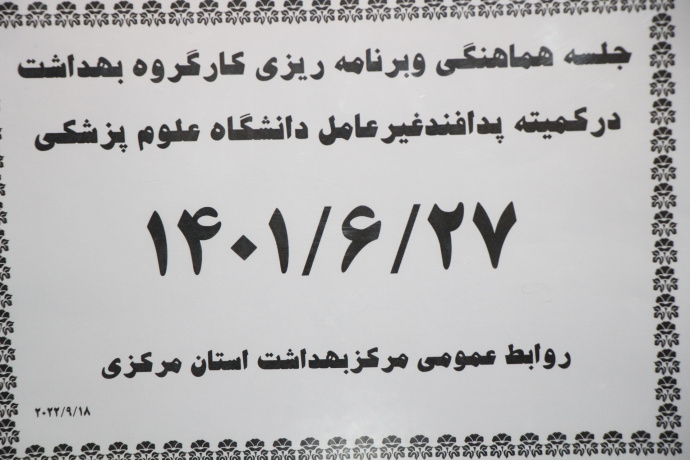 جلسه هماهنگی وبرنامه ریزی کارگروه بهداشت
درکمیته پدافندغیرعامل دانشگاه علوم پزشکی
۱۴۰۱/۶/۲۷
روابط عمومی مرکزبهداشت استان مرکزی
۲۰۲۲/۹/۱۸